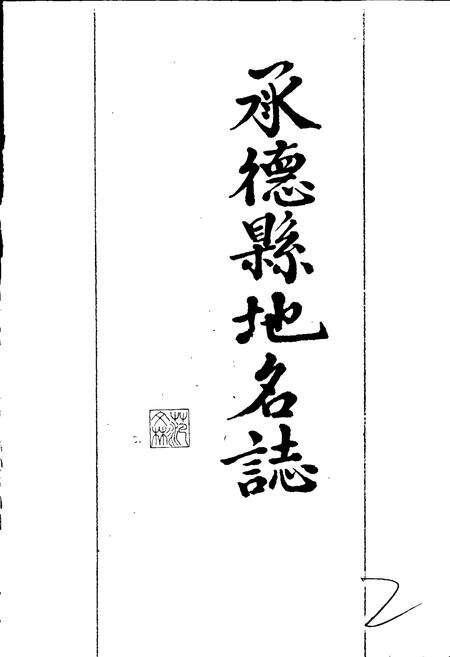 承德縣地名誌